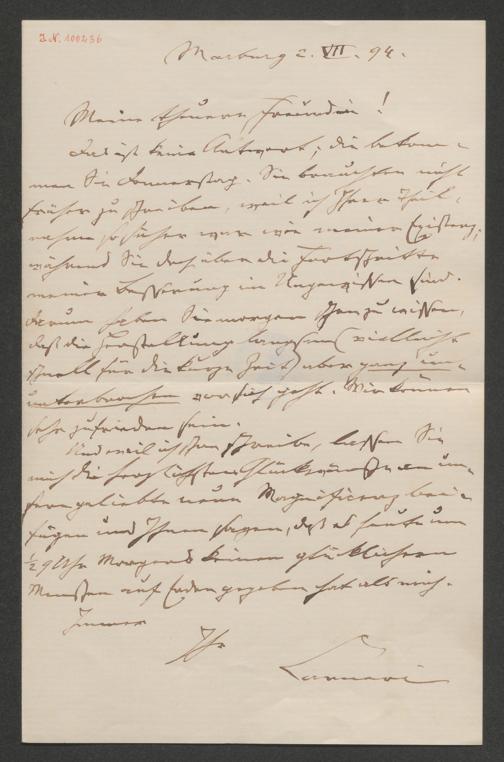 J.N. 100236
Marburg 2. VII. 94.
Meine theuere Freundin!
Das ist keine Antwort; die bekom-
men Sie Donnerstag. Sie brauchten nicht
früher zu schreiben, weil ich Ihrer Theil-
nahme so sicher war wie meiner Existenz,
während Sie doch über die Fortschritte
meiner Besserung im Ungewissen sind.
Darum haben Sie morgen schon zu wissen,
daß die Herstellung langsam (vielleicht
schnell für die kurze Zeit) aber ganz un-
unterbrochen vor sich geht. Wir können
sehr zufrieden sein.
Und weil ich schon schreibe, lassen Sie
mich die herzlichsten Glückwünsche an un-
sern geliebten neuen Magnificenz bei-
fügen und Ihnen sagen, daß es heute um
½ 9 Uhr Morgens keinen glücklichern
Menschen auf Erden gegeben hat als mich.
Immer
Ihr
Carneri